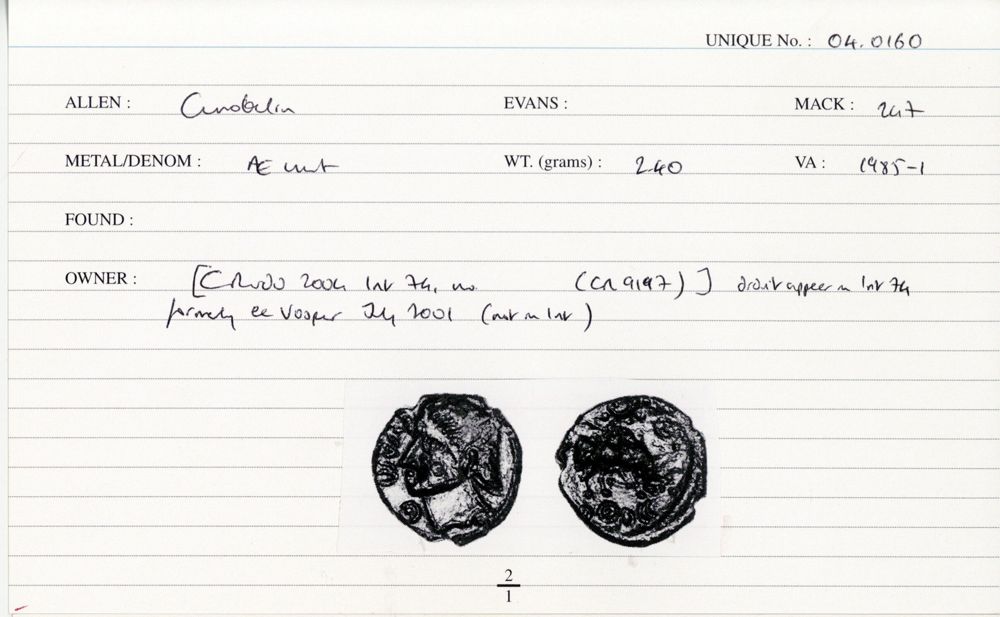 UNIQUE No. : 04.0160
ALLEN : Cunobelin EVANS : MACK : 247
METAL/DENOM : Æ unit WT. (grams) : 2.40 VA : 1985-1
FOUND :
OWNER : [CR 2004 list 74, no. (CR 9197) ] didn't appear in list 74
formerly ex Vosper July 2001 (not in list)
2
1